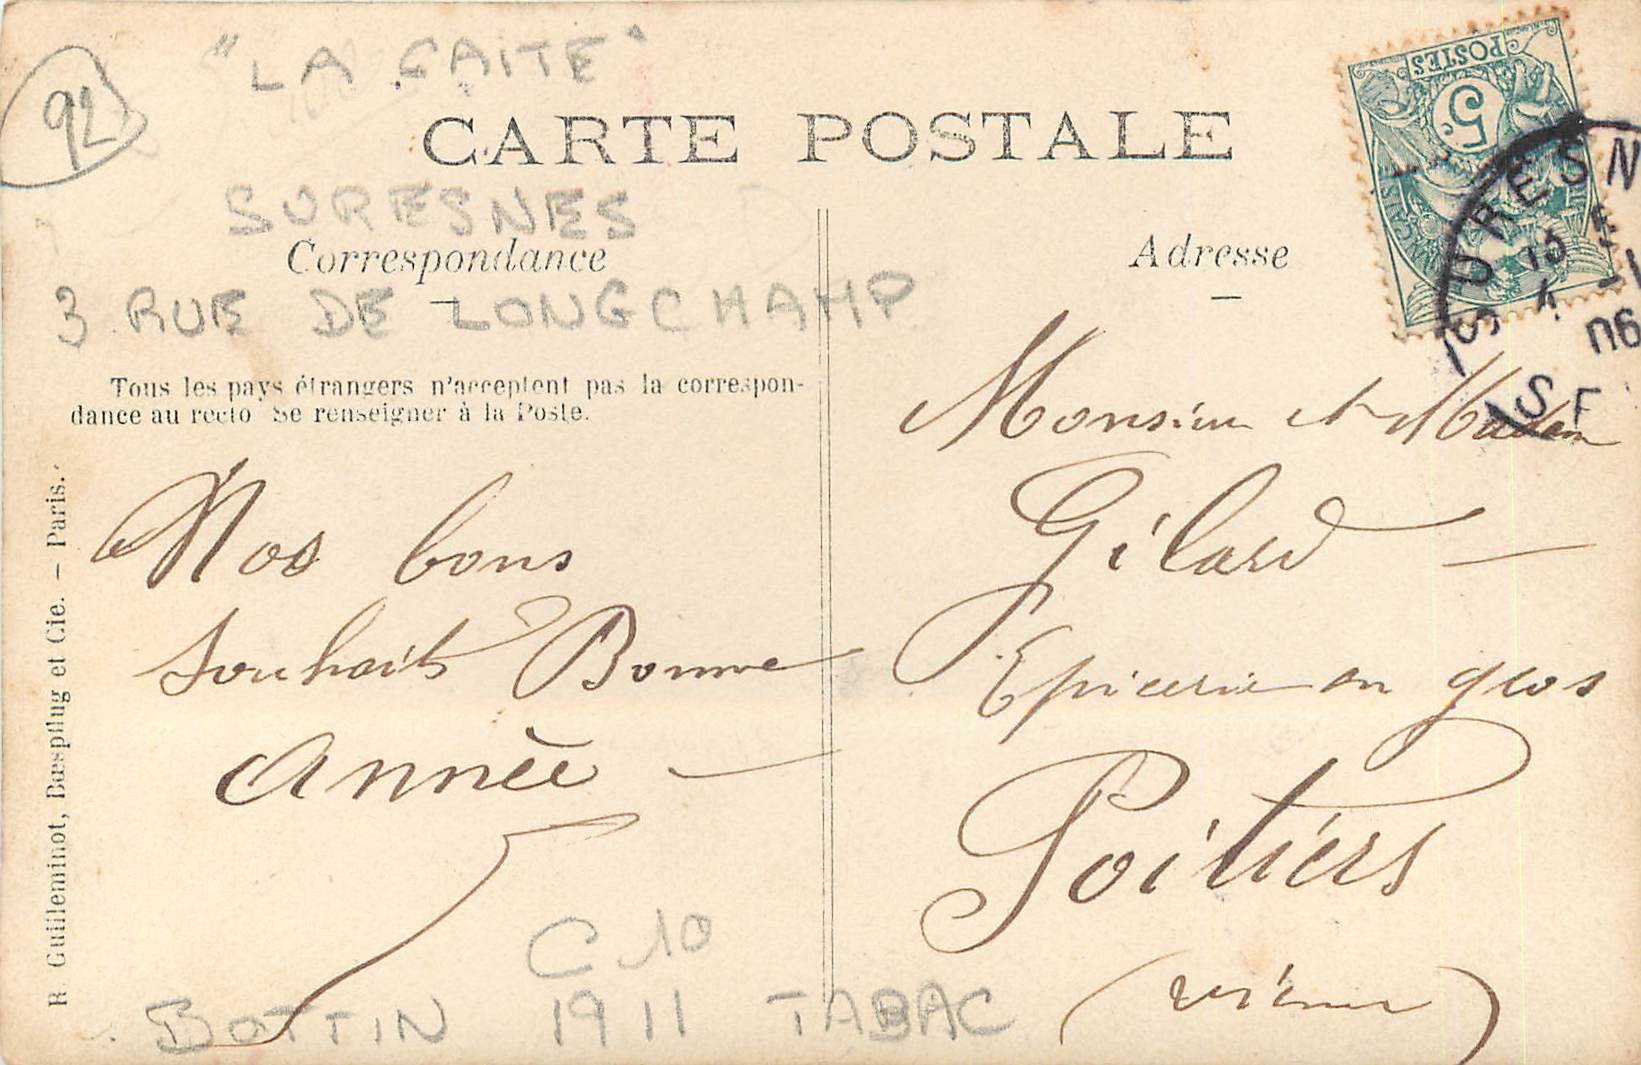 92
"LA GAITE"
CARTE POSTALE
SURESNES
Correspondance
3 RUE DE LONGCHAMP
Tous les pays étrangers n'acceptent pas la correspon-
dance au recto Se renseigner à la Poste.
R. Guilleminot, Bœspflug et Cie. – Paris.
Nos bons
souhaits Bonne
Année –
C 10
BOTTIN 1911 TABAC
Adresse
POSTES
5c
SURESN
4 -1
06
SE
Monsieur et Madame
Gilard –
Epicerie en gros
Poitiers
(Vienne)